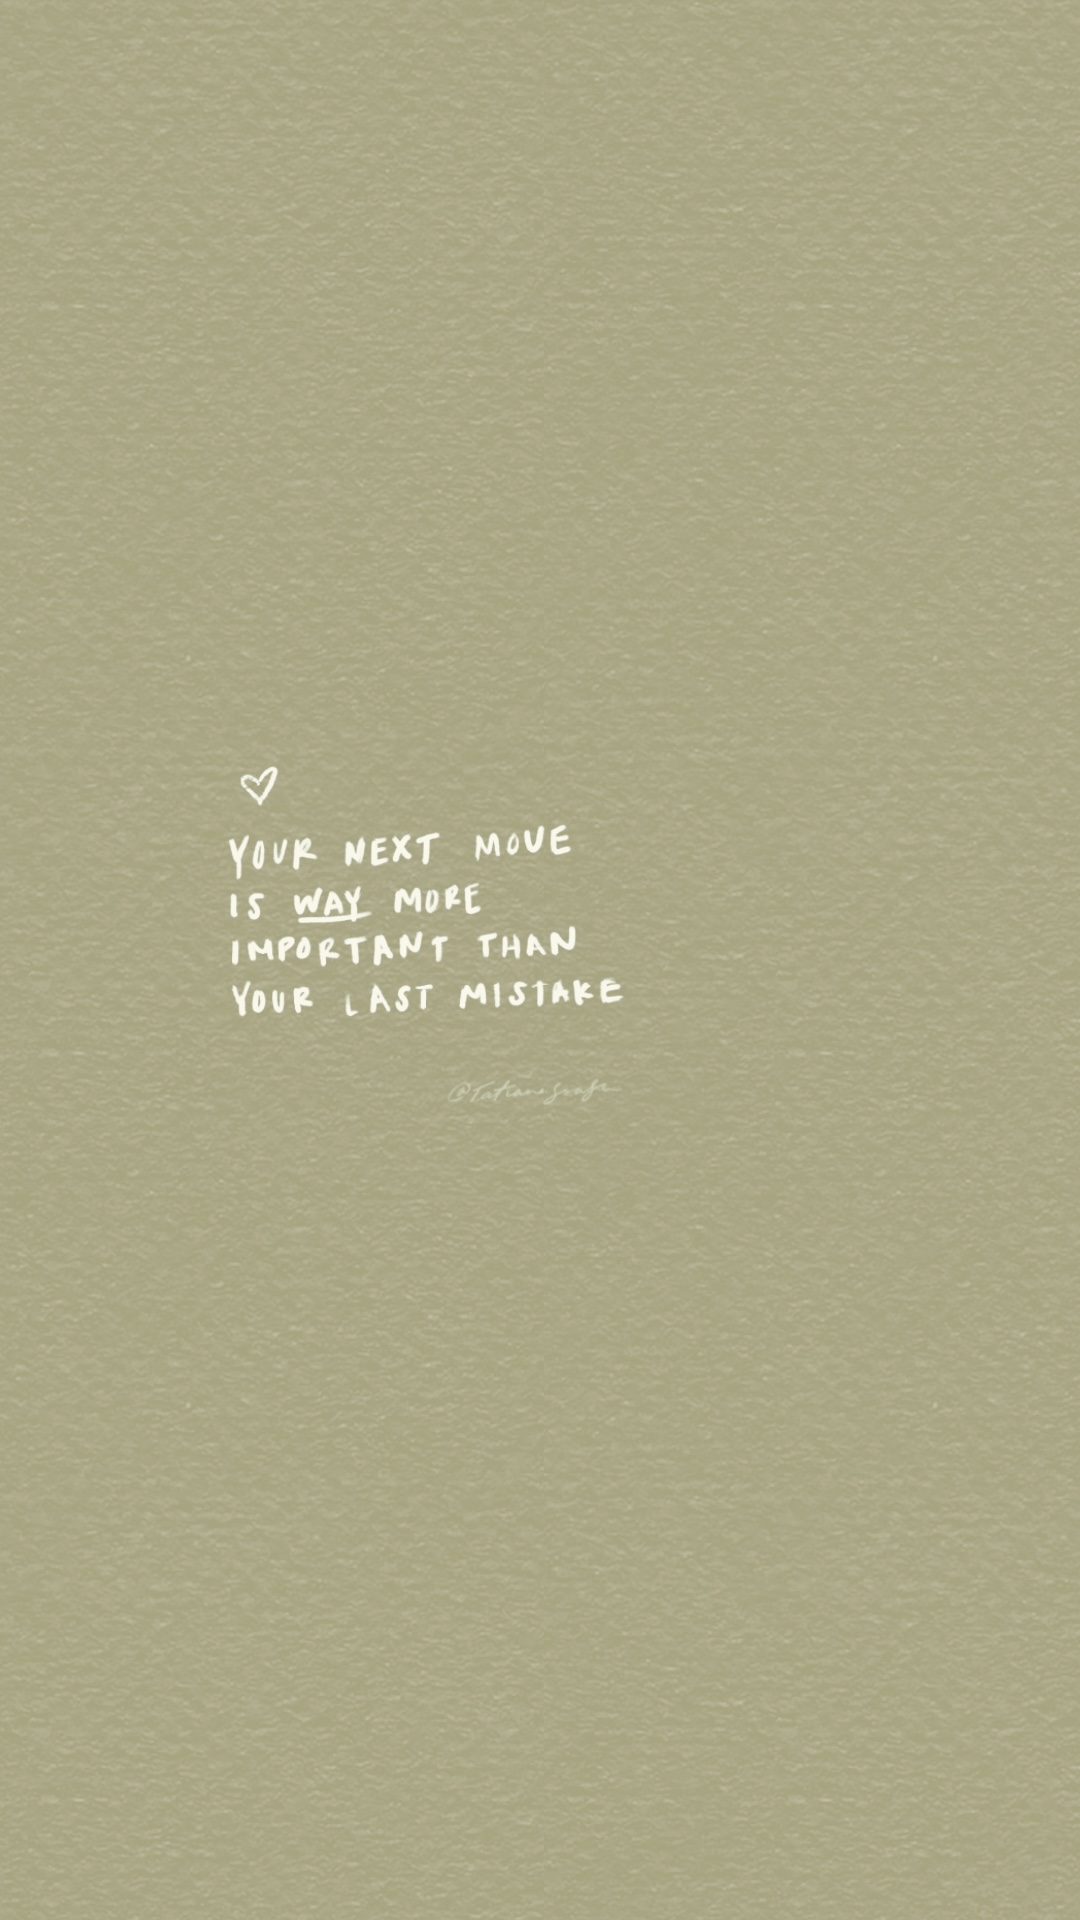 YOUR NEXT MOVE
IS WAY MORE
IMPORTANT THAN
YOUR LAST MISTAKE